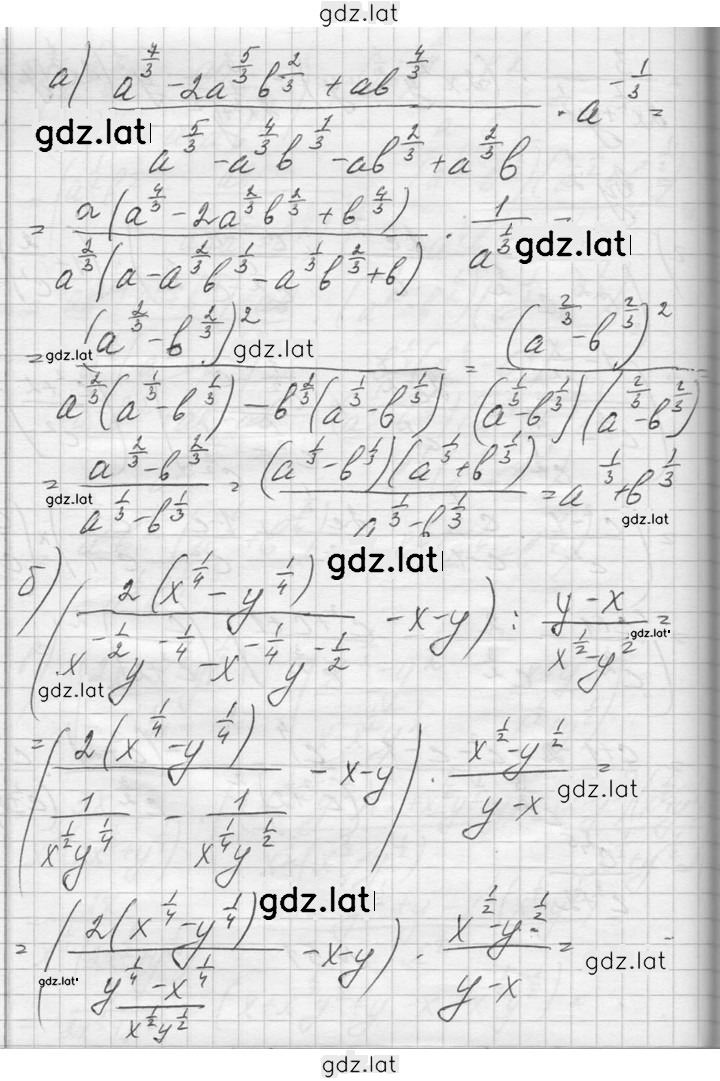 gdz.lat
а) (a^(7/3) - 2a^(5/3)b^(2/3) + ab^(4/3)) / (a^(5/3) - a^(4/3)b^(1/3) - ab^(2/3) + a^(2/3)b) · a^(-1/3) =
gdz.lat
= a(a^(4/3) - 2a^(2/3)b^(2/3) + b^(4/3)) / (a^(2/3)(a - a^(2/3)b^(1/3) - a^(1/3)b^(2/3) + b)) · 1/a^(1/3) =
gdz.lat
= (a^(2/3) - b^(2/3))^2 / (a^(2/3)(a^(1/3) - b^(1/3)) - b^(2/3)(a^(1/3) - b^(1/3))) = (a^(2/3) - b^(2/3))^2 / ((a^(1/3) - b^(1/3))(a^(2/3) - b^(2/3))) =
gdz.lat gdz.lat
= (a^(2/3) - b^(2/3)) / (a^(1/3) - b^(1/3)) = (a^(1/3) - b^(1/3))(a^(1/3) + b^(1/3)) / (a^(1/3) - b^(1/3)) = a^(1/3) + b^(1/3)
gdz.lat gdz.lat
gdz.lat
б) (2(x^(1/4) - y^(1/4)) / (x^(-1/2)y^(-1/4) - x^(-1/4)y^(-1/2)) - x - y) : (y - x) / (x^(1/2) - y^(1/2)) =
gdz.lat gdz.lat
= (2(x^(1/4) - y^(1/4)) / (1/(x^(1/2)y^(1/4)) - 1/(x^(1/4)y^(1/2))) - x - y) · (x^(1/2) - y^(1/2)) / (y - x) =
gdz.lat
gdz.lat
= (2(x^(1/4) - y^(1/4)) / ((y^(1/4) - x^(1/4)) / (x^(1/2)y^(1/2))) - x - y) · (x^(1/2) - y^(1/2)) / (y - x) =
gdz.lat gdz.lat
gdz.lat